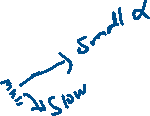 Small α
Slow